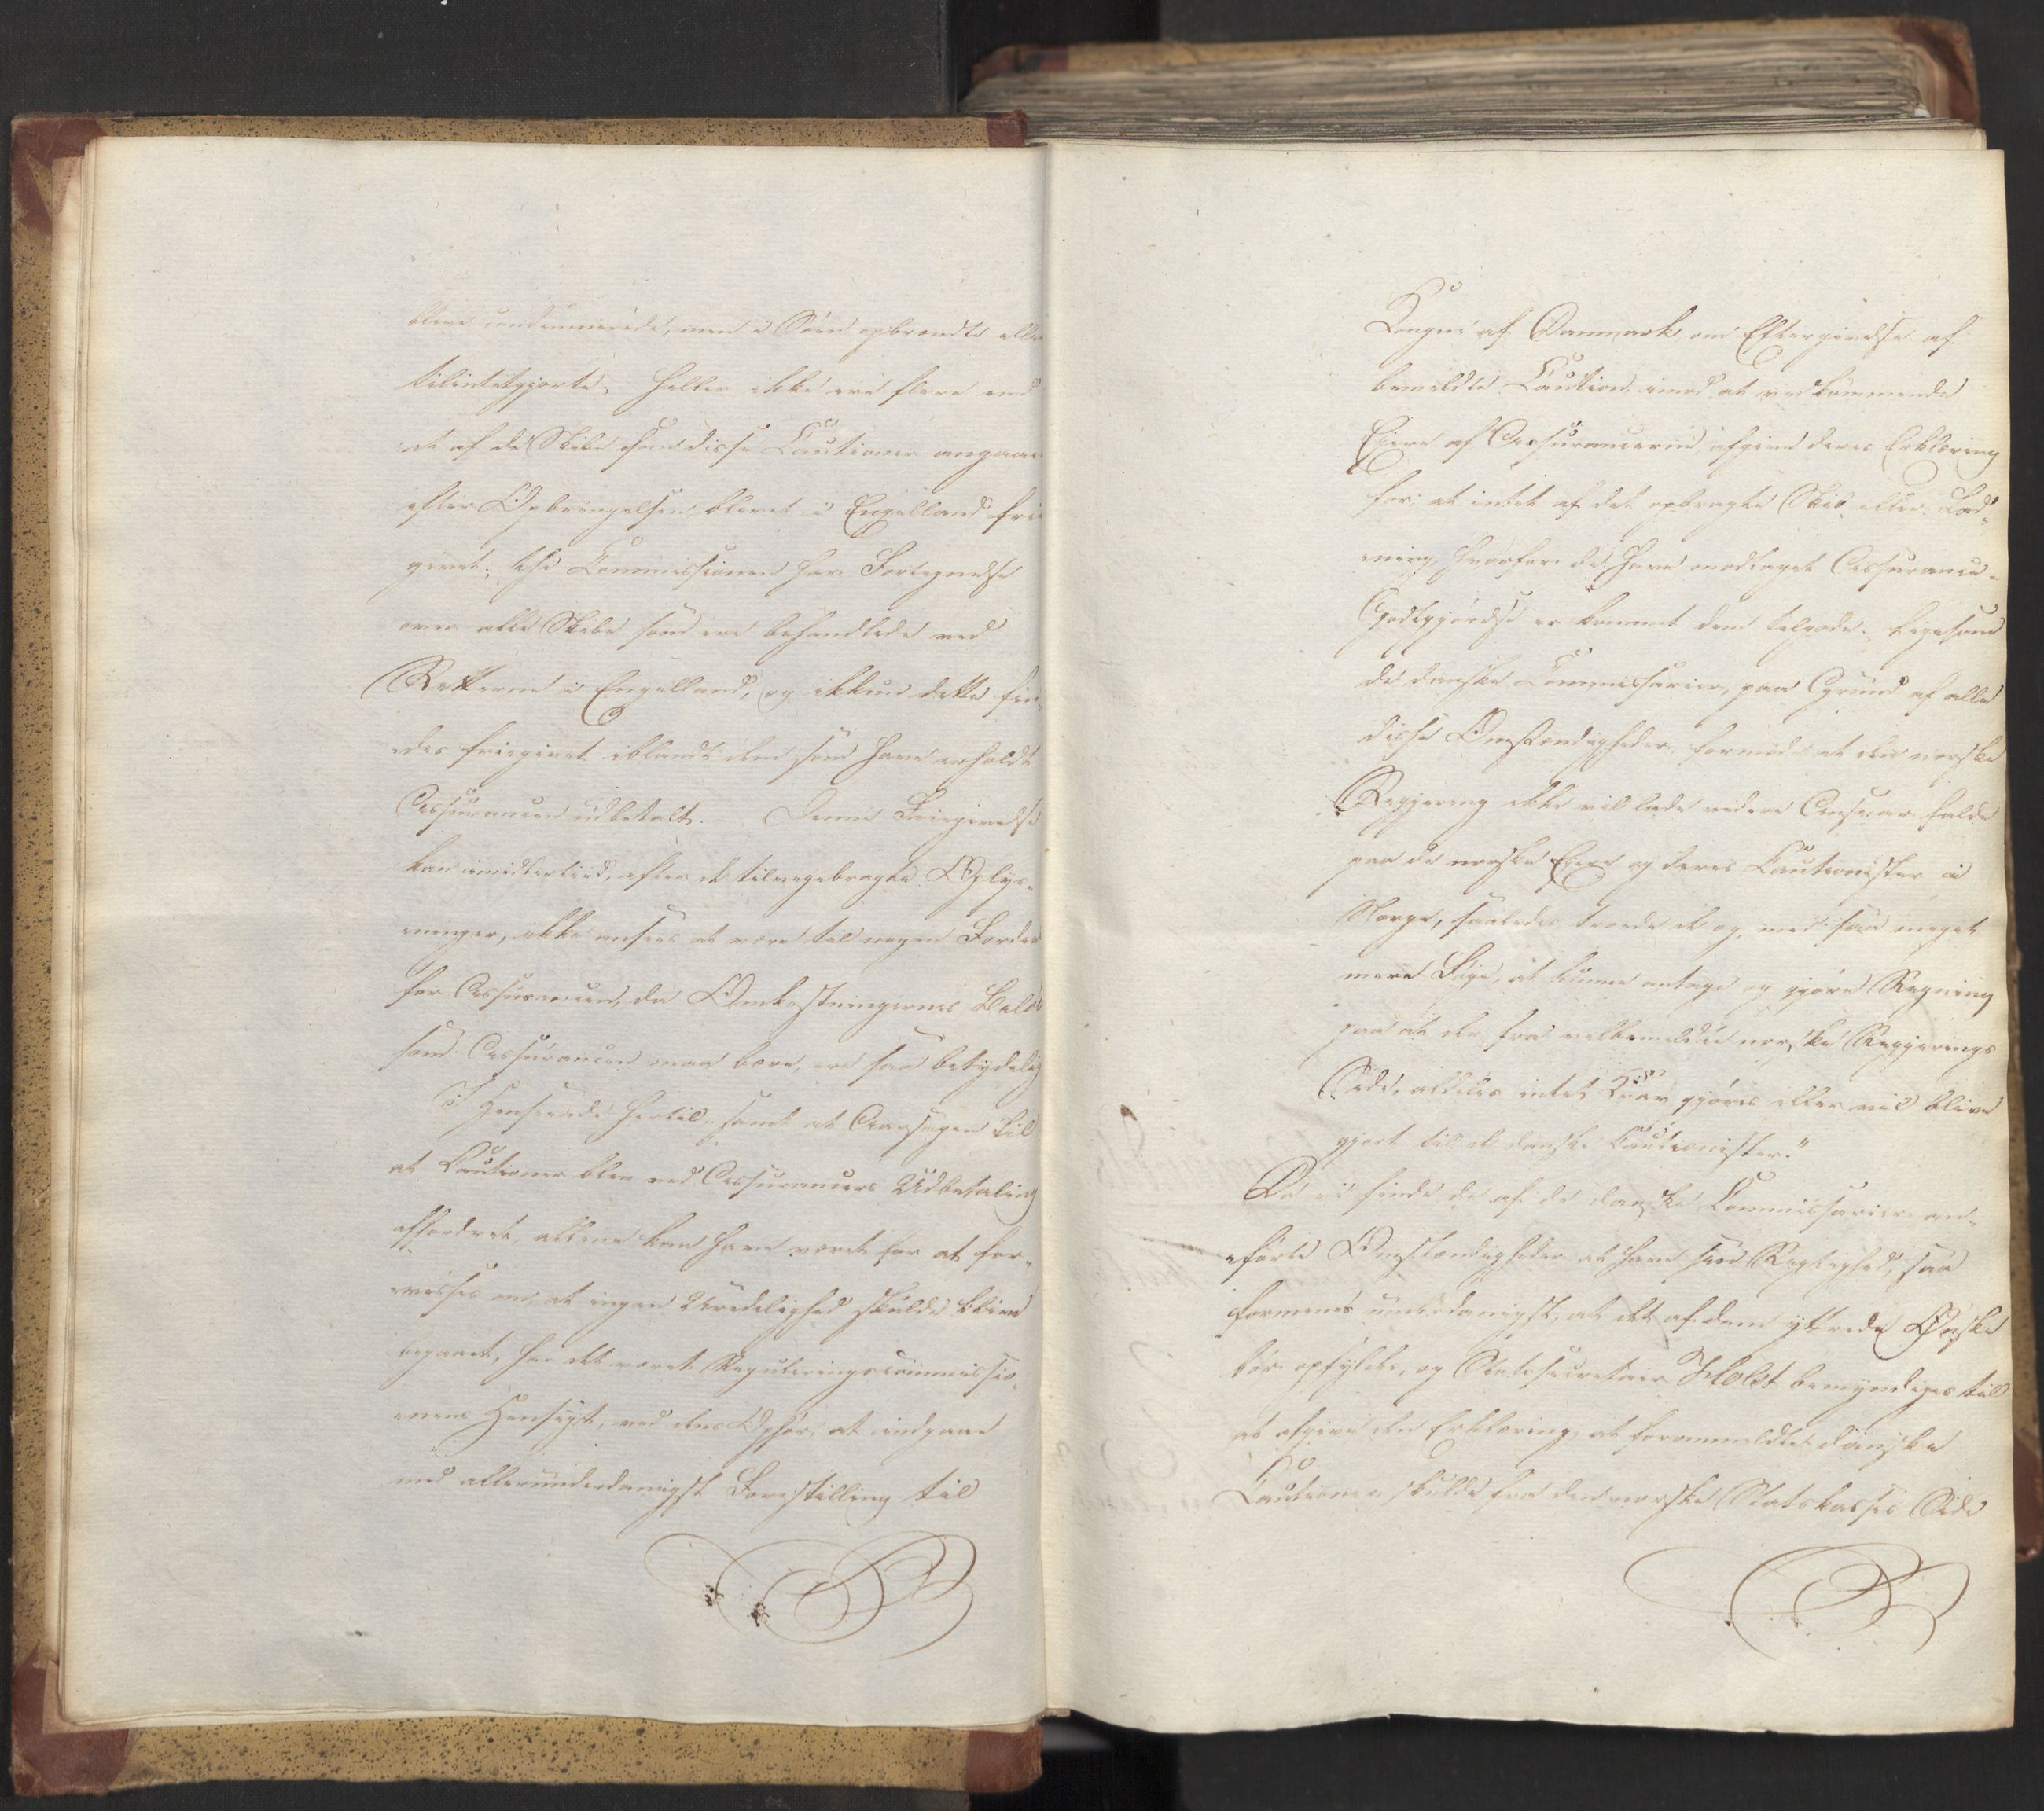 bleve condemnerede, men i Søen opbrændte eller
tilintetgjorte; heller ikke ere flere end
et af de Skibe som disse Cautioner angaaer
efter Opbringelsen blevet i Engelland fri-
givet; thi Commissionen har Fortegnelse
over alle Skibe som ere behandlede ved
Retterne i Engelland, og ikkun dette fin-
des frigivet iblandt dem som have erholdt
Assurancen udbetalt. Denne Frigivelse
kan imidlertiid, efter de tilveiebragte Oplys-
ninger, ikke ansees at være til nogen Fordeel
for Assurancen, da Omkostningernes Beløb
som Assurancen maa bære, ere saa betydelig
I Henseende hertil, samt at Aarsagen til
at Cautioner blev ved Assurancers Udbetaling
affordret, allene kan have været for at for-
visses om, at ingen Uredelighed skulde blive
begaaet, har det været Reguleringscommissio-
nens Hensigt, ved dens Ophør, at indgaae
med allerunderdanigst Forestilling til
Kongen af Danmark om Eftergivelse af
bemeldte Caution, imod at vedkommende
Eiere af Assurancerne afgive deres Erklæring
for: at intet af det opbragte Skib eller Lad-
ning, hvorfor de have modtaget Assurance-
Godtgjørelse er kommet dem tilgode; ligesom
de danske Commissarier, paa Grund af alle
disse Omstændigheder, formode at den norske
Regjering ikke vil lade videre Ansvar falde
paa de norske Eiere og deres Cautionister i
Norge, saaledes troede de og, med saa meget
mere Føie, at kunne antage og gjøre Regning
paa at der fra velbemeldte norske Regjerings
Side, aldeles intet Krav gjøres eller vil blive
gjort til de danske Cautionister."
Da vi finde de af de danske Commissarier an-
førte Omstændigheder at have sin Rigtighed, saa
formenes underdanigst, at det af dem yttrede Ønske
bør opfyldes, og Statssecretair Holst bemyndiges til
at afgive den Erklæring, at forommeldte danske
Cautioner skulde fra den norske Statskasses Side